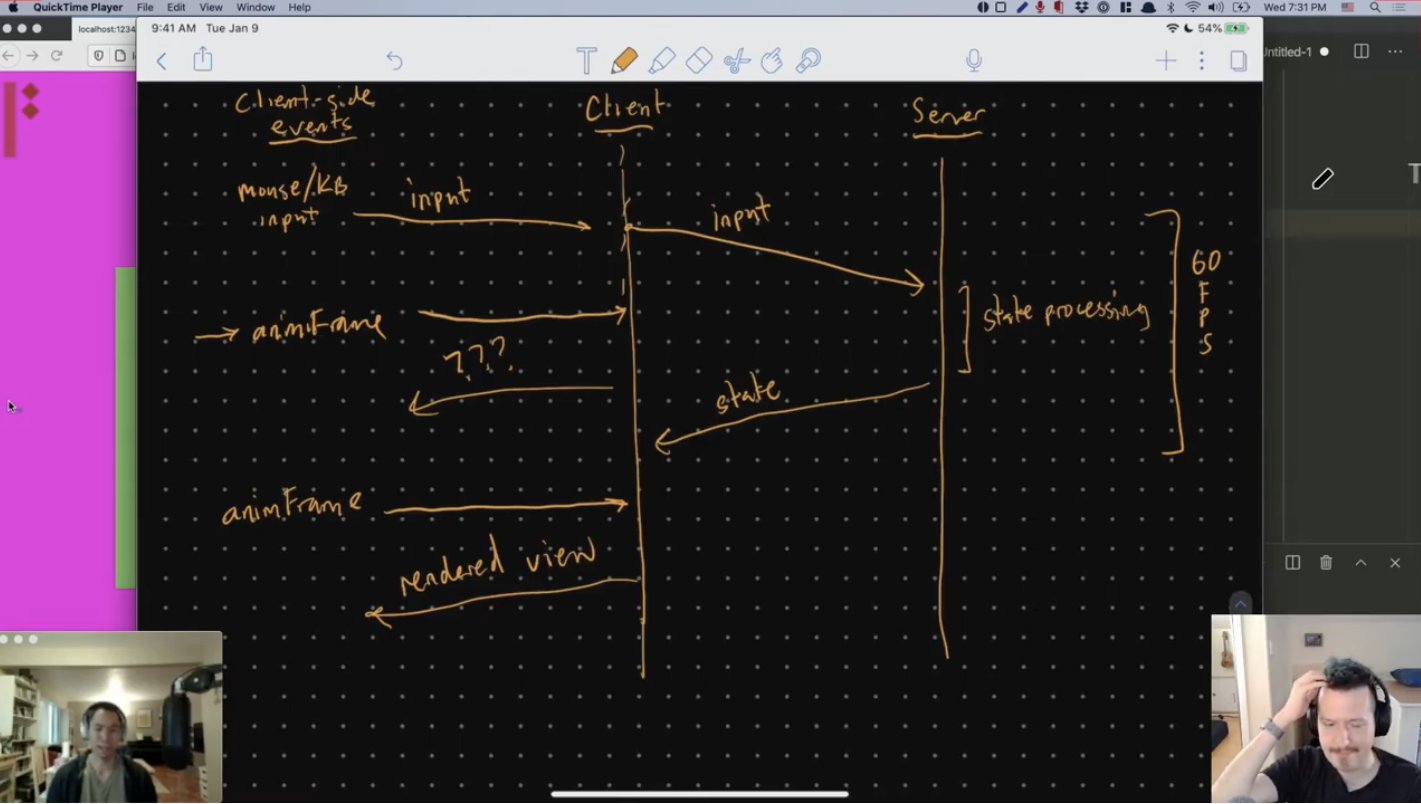 QuickTime Player File Edit View Window Help
Wed 7:31 PM
localhost:1234
9:41 AM Tue Jan 9
54%
Untitled-1
T
T
Client-side
events
Client
Server
mouse/KB
input
input
input
60
F
P
S
state processing
→ animFrame
???
state
animFrame
rendered view